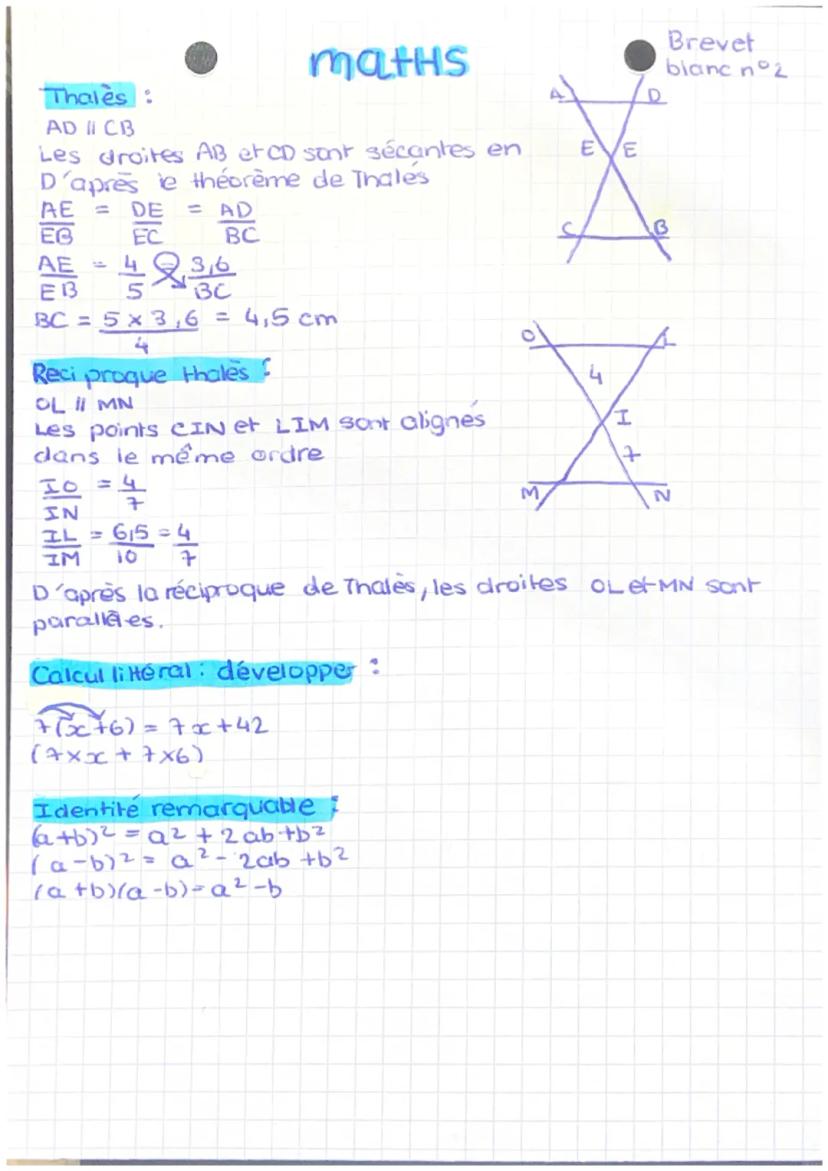 maths
Brevet
blanc n°2
Thalès :
AD // CB
Les droites AB et CD sont sécantes en
D'après le théorème de Thalès
AE/EB = DE/EC = AD/BC
AE/EB = 4/5 3,6/BC
BC = 5 x 3,6/4 = 4,5 cm
A D
E E
C B
Reciproque thalès :
OL // MN
Les points CIN et LIM sont alignés
dans le même ordre
IO/IN = 4/7
IL/IM = 6,5/10 = 4/7
O L
4
I
7
M N
D'après la réciproque de Thalès, les droites OL et MN sont
parallèles.
Calcul littéral : développer :
7(x+6) = 7x+42
(7×x + 7×6)
Identité remarquable :
(a+b)² = a² + 2ab+b²
(a-b)² = a² - 2ab +b²
(a+b)(a-b)=a²-b